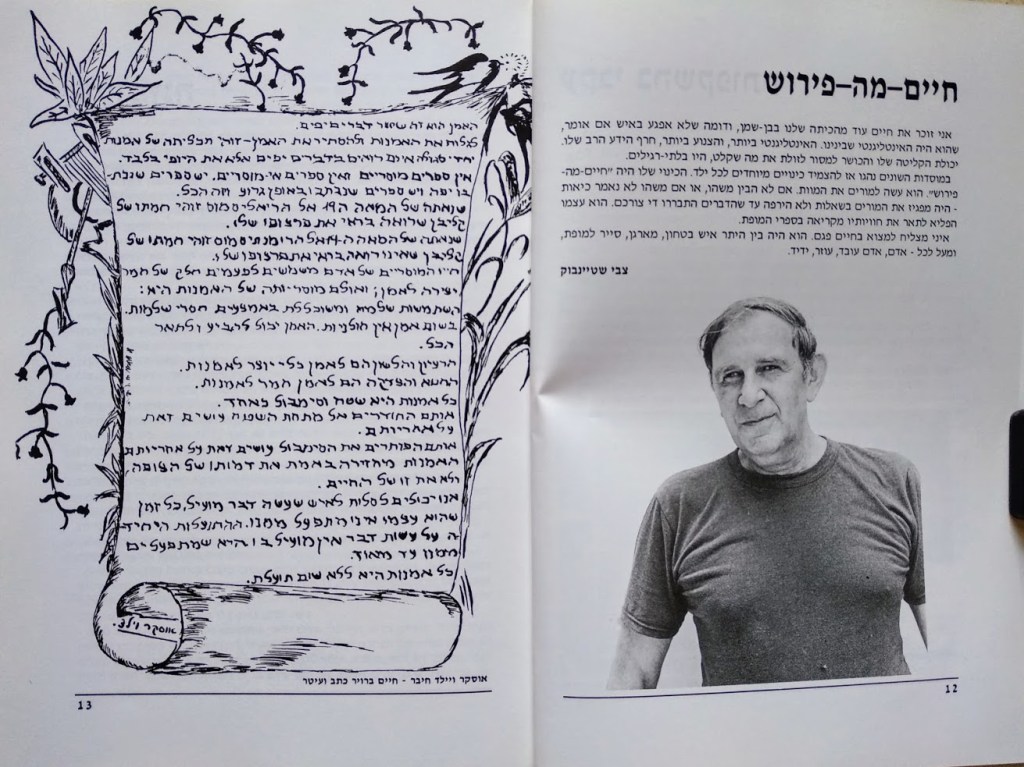 חיים–מה–פירוש
אני זוכר את חיים עוד מהכיתה שלנו בבן-שמן, ודומה שלא אפגע באיש אם אומר,
שהוא היה האינטליגנטי שבינינו. האינטליגנטי ביותר, והצנוע ביותר, חרף הידע הרב שלו.
יכולת הקליטה שלו והכושר למסור לזולת את מה שקלט, היו בלתי-רגילים.
במוסדות השונים נהגו אז להצמיד כינויים מיוחדים לכל ילד. הכינוי שלו היה "חיים-מה-
פירוש". הוא עשה למורים את המוות. אם לא הבין משהו, או אם משהו לא נאמר כיאות
- היה מפגיז את המורים בשאלות ולא הירפה עד שהדברים התבררו די צורכם. הוא עצמו
הפליא לתאר את חוויותיו מקריאה בספרי המופת.
איני מצליח למצוא בחיים פגם. הוא היה בין היתר איש בטחון, מארגן, סייר למופת,
ומעל לכל - אדם, אדם עובד, עוזר, ידיד.
צבי שטיינבוק
12
האמן הוא זה שיוצר דברים יפים.
לגלות את האמנות ולהסתיר את האמן-זוהי תכליתה של אמנות
אין ספרים מוסריים ואין ספרים אי-מוסריים. יש ספרים שנכת-
בו יפה ויש ספרים שנכתבו באופן גרוע וזה הכל.
שנאתה של המאה ה19 אל הריאליסמוס זוהי חמתו של
קליבן שרואה בראי את פרצופו שלו.
שנאתה של המאה ה19 אל הרומנטיסמוס זוהי חמתו של
קליבן שאינו רואה בראי את פרצופו שלו.
חייו המוסריים של אדם משמשים לפעמים חלק של חמר
יצירה לאמן; ואולם מוסריותה של האמנות היא:
השתמשות שלמה ומשוכללת באמצעים חסרי שלמות.
בשום אמן אין חולניות. האמן יכול להביע ולתאר
הכל.
הרעיון והלשון הם לאמן כלי-יוצר לאמנות.
החטא והצדקה הם לאמן חמר לאמנות.
כל אמנות היא שטח וסימבול כאחד.
אותם החודרים אל מתחת השטח עושים זאת
על אחריותם.
אותם הפותרים את הסימבול עושים זאת על אחריותם
האמנות מחזירה באמת את דמותו של הצופה,
ולא את זו של החיים.
אנו יכולים לסלוח לאיש שעשה דבר מועיל, כל זמן
שהוא עצמו אינו מתפעל ממנו. ההתנצלות היחיד-
ה על עשות דבר אין מועיל בו היא שמתפעלים
ממנו עד מאוד.
כל אמנות היא ללא שום תועלת.
אוסקר וילד.
אוסקר ויילד חיבר - חיים ברויר כתב ועיטר
13